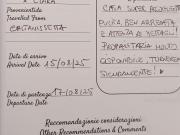 X CIARA
Provenienza
Travelled From
CALTANISSETTA
Data di arrivo
Arrival Date 15/08/25
Data di partenza 17/08/25
Departure Date
CASA SUPER ACCOGLIENTE
PULITA, BEN ARREDATA
E ATTENTA AI DETTAGLI.
PROPRIETARIA MOLTO
DISPONIBILE, TORNEREMO
SICURAMENTE!
Raccomandazioni e considerazioni
Other Recommendations & Comments